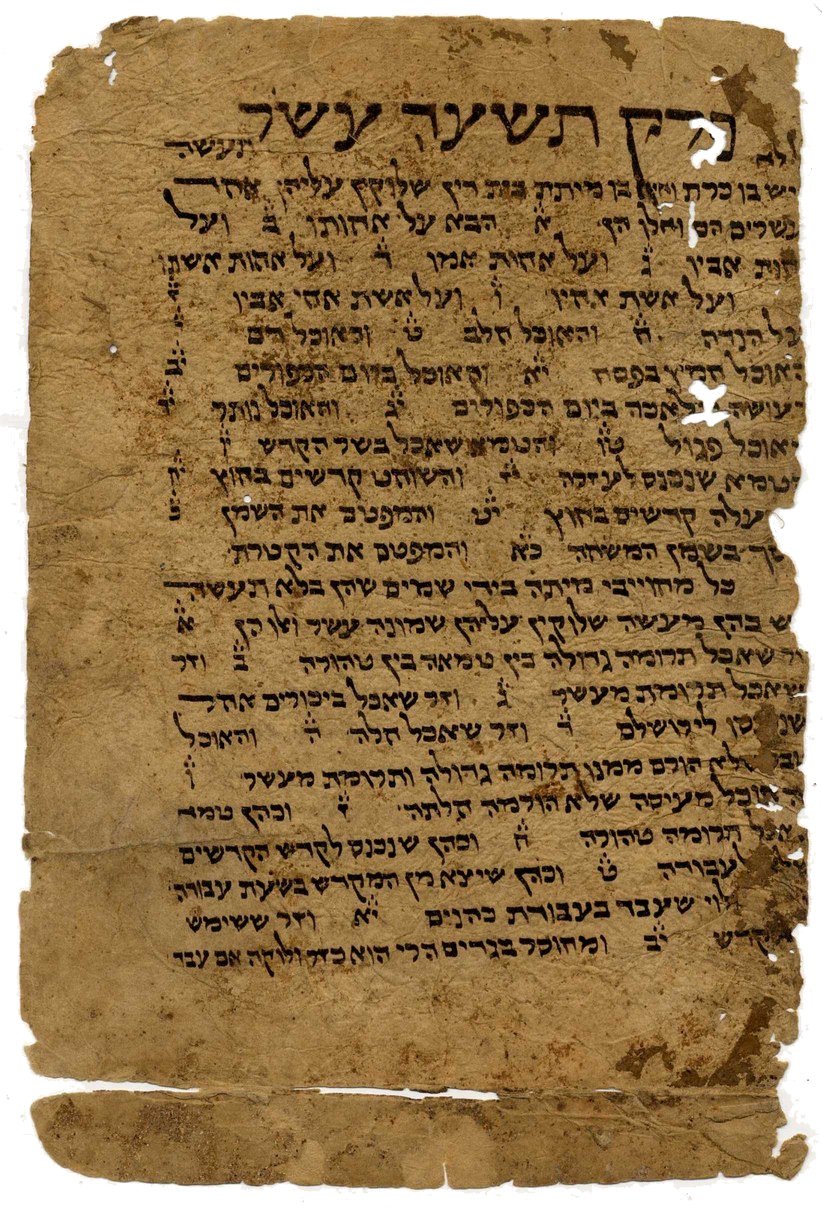 פרק תשעה עשר
תעשה
בו כרת ואין בו מיתת בית דין שלוקין עליהן אחד
ועשרים הם ואלו הן א הבא על אחותו ב ועל
אחות אביו ג ועל אחות אמו ד ועל אחות אשתו
ועל אשת אחיו ו ועל אשת אחי אביו ז
על הנדה ח והאוכל חלב ט והאוכל דם י
חמץ בפסח יא והאוכל ביום הכפורים יב
מלאכה ביום הכפורים יג והאוכל נותר יד
פגול טו והטמא שאכל בשר הקדש יו
שנכנס לעזרה יז והשוחט קדשים בחוץ יח
קדשים בחוץ יט והמפטם את השמן כ
בשמן המשחה כא והמפטם את הקטרת
כל מחוייבי מיתה בידי שמים שהן בלא תעשה
בהן מעשה שלוקין עליהן שמונה עשר ואלו הן א
שאכל תרומה גדולה בין טמאה בין טהורה ב וזר
שאכל תרומת מעשר ג וזר שאכל ביכורים אחר
לירושלם ד וזר שאכל חלה ה והאוכל
שלא הורם ממנו תרומה גדולה ותרומת מעשר ו
מעיסה שלא הורמה חלתה ז וכהן טמא
תרומה טהורה ח וכהן שנכנס לקדש הקדשים
לעבודה ט וכהן שיצא מן המקדש בשעת עבודה
לוי שעבד בעבודת כהנים יא וזר ששימש
יב ומחוסר בגדים הרי הוא כזר ולוקה אם עבד